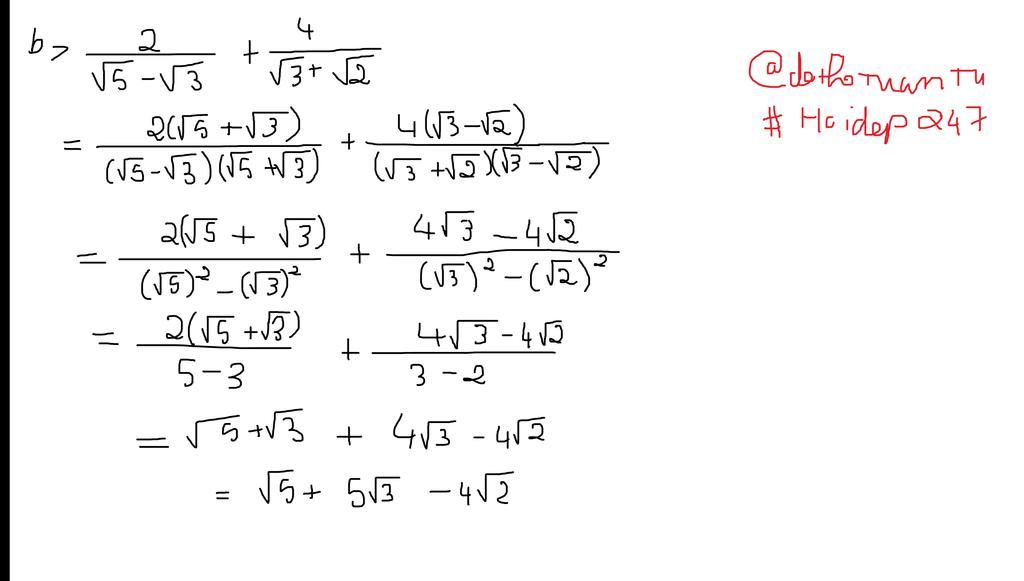 b> 2/(√5 - √3) + 4/(√3 + √2)
= 2(√5 + √3)/((√5 - √3)(√5 + √3)) + 4(√3 - √2)/((√3 + √2)(√3 - √2))
= 2(√5 + √3)/((√5)² - (√3)²) + (4√3 - 4√2)/((√3)² - (√2)²)
= 2(√5 + √3)/(5 - 3) + (4√3 - 4√2)/(3 - 2)
= √5 + √3 + 4√3 - 4√2
= √5 + 5√3 - 4√2
# Hoidap247